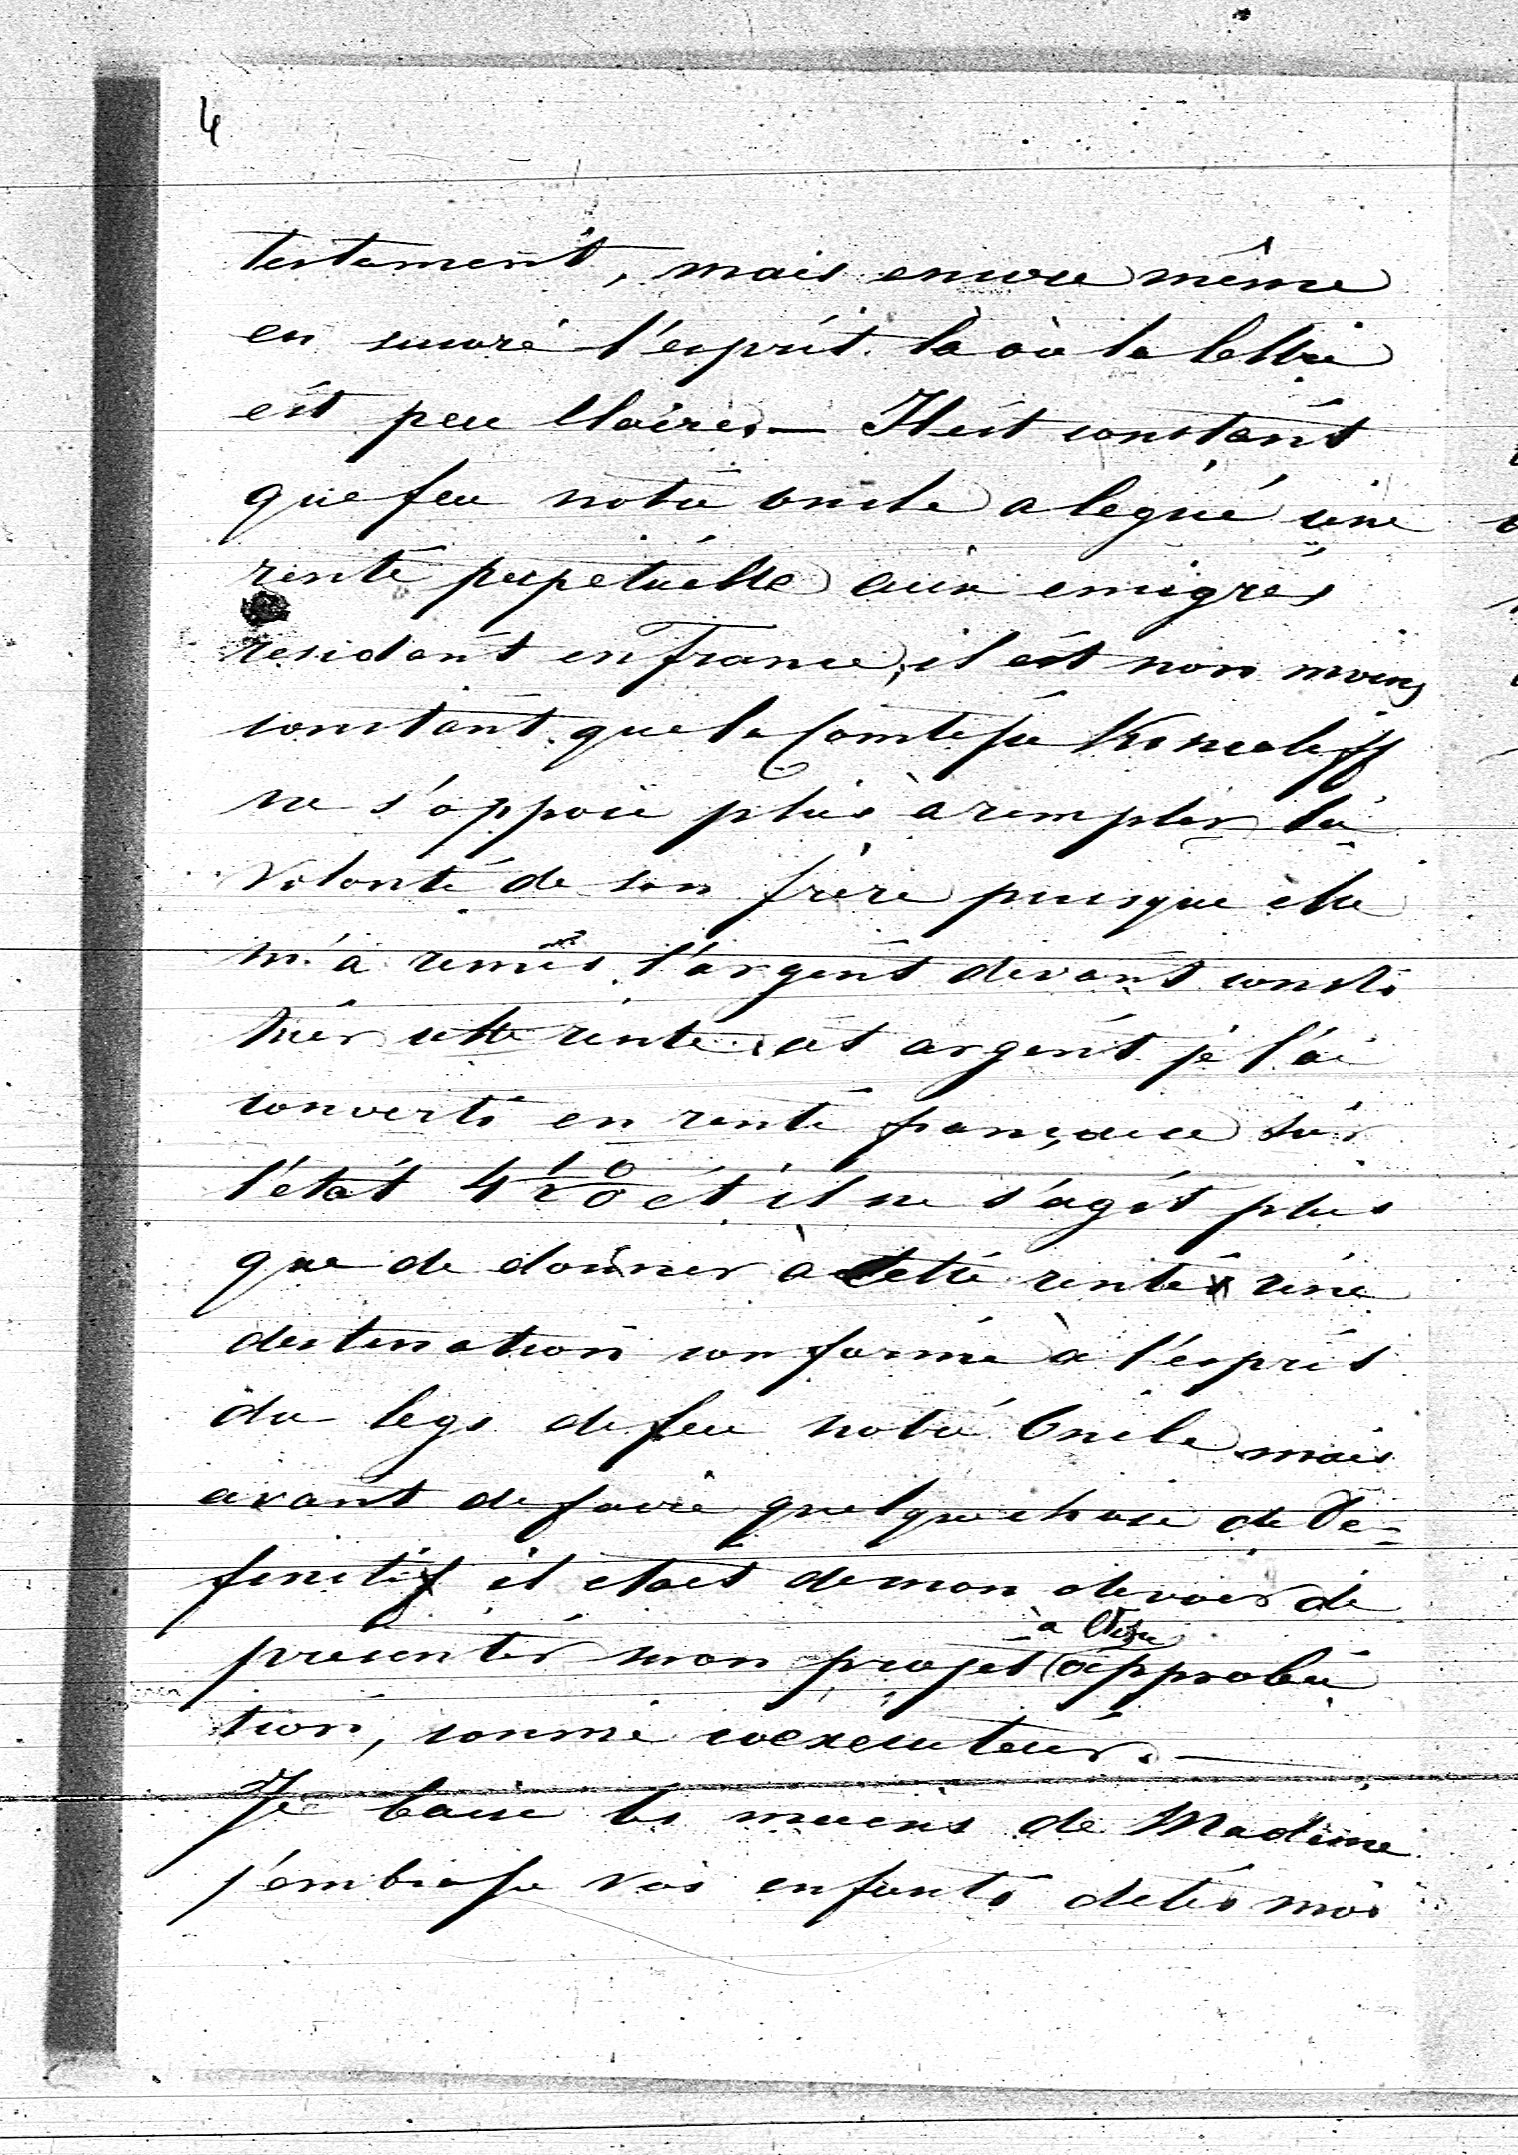 4
testament, mais encore même
en suivre l'esprit là où la lettre
est peu claire. — Il est constant
que feu notre oncle a legué une
rente perpetuelle aux emigrés
residant en France, il est non moins
constant que la Comtesse
ne s'oppose plus à remplir la
volonté de son frère puisque elle
m'a remis l'argent devant consti
tuer cette rente. cet argent je l'ai
converti en rente française sur
l'état 4 1/2 0/0 et il ne s'agit plus
que de donner à cette rente une
destination conforme à l'esprit
du legs de feu notre Oncle mais
avant de faire quelque chose de De-
finitif il etait de mon devoir de
presenter mon projet à Votre approba
tion, comme coexecuteur. —
Je baise les mains de Madame
j'embrasse vos enfants dites moi